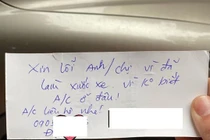 Xin lỗi Anh/chị vì đã
làm xước xe vì ko biết
A/c ở đâu!
A/c liên hệ nhé!
090
Đ